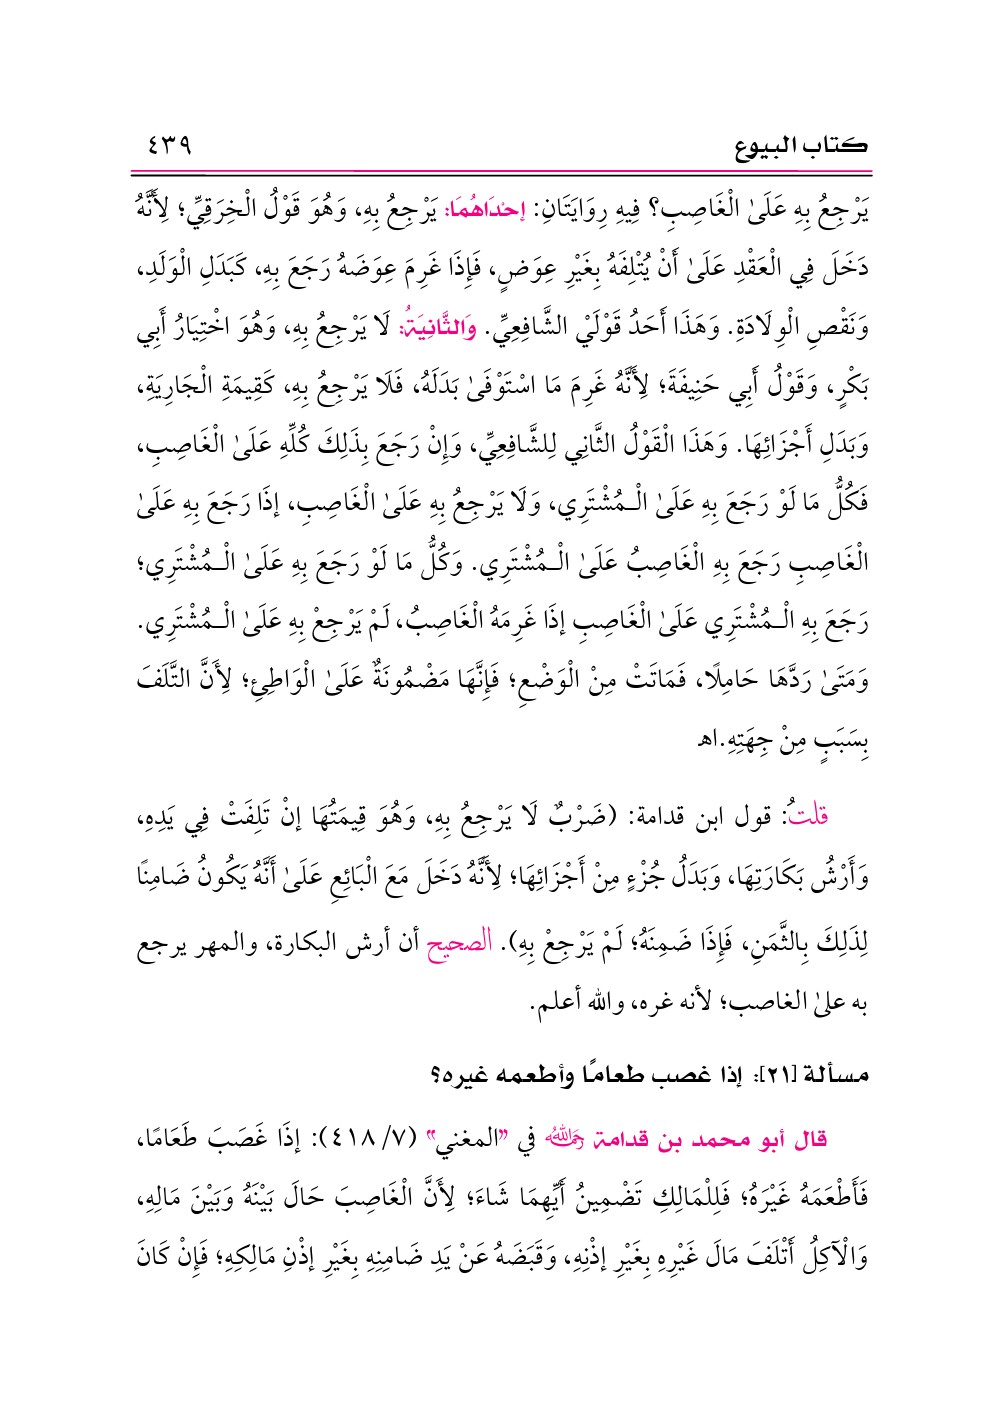 كتاب البيوع ٤٣٩
يَرْجِعُ بِهِ عَلَىٰ الْغَاصِبِ؟ فِيهِ رِوَايَتَانِ: إحْدَاهُمَا: يَرْجِعُ بِهِ، وَهُوَ قَوْلُ الْخِرَقِيِّ؛ لِأَنَّهُ
دَخَلَ فِي الْعَقْدِ عَلَىٰ أَنْ يُتْلِفَهُ بِغَيْرِ عِوَضٍ، فَإِذَا غَرِمَ عِوَضَهُ رَجَعَ بِهِ، كَبَدَلِ الْوَلَدِ،
وَنَقْصِ الْوِلَادَةِ. وَهَذَا أَحَدُ قَوْلَيْ الشَّافِعِيِّ. وَالثَّانِيَةُ: لَا يَرْجِعُ بِهِ، وَهُوَ اخْتِيَارُ أَبِي
بَكْرٍ، وَقَوْلُ أَبِي حَنِيفَةَ؛ لِأَنَّهُ غَرِمَ مَا اسْتَوْفَىٰ بَدَلَهُ، فَلَا يَرْجِعُ بِهِ، كَقِيمَةِ الْجَارِيَةِ،
وَبَدَلِ أَجْزَائِهَا. وَهَذَا الْقَوْلُ الثَّانِي لِلشَّافِعِيِّ، وَإِنْ رَجَعَ بِذَلِكَ كُلِّهِ عَلَىٰ الْغَاصِبِ،
فَكُلُّ مَا لَوْ رَجَعَ بِهِ عَلَىٰ الْـمُشْتَرِي، وَلَا يَرْجِعُ بِهِ عَلَىٰ الْغَاصِبِ، إذَا رَجَعَ بِهِ عَلَىٰ
الْغَاصِبِ رَجَعَ بِهِ الْغَاصِبُ عَلَىٰ الْـمُشْتَرِي. وَكُلُّ مَا لَوْ رَجَعَ بِهِ عَلَىٰ الْـمُشْتَرِي؛
رَجَعَ بِهِ الْـمُشْتَرِي عَلَىٰ الْغَاصِبِ إذَا غَرِمَهُ الْغَاصِبُ، لَمْ يَرْجِعْ بِهِ عَلَىٰ الْـمُشْتَرِي.
وَمَتَىٰ رَدَّهَا حَامِلًا، فَمَاتَتْ مِنْ الْوَضْعِ؛ فَإِنَّهَا مَضْمُونَةٌ عَلَىٰ الْوَاطِئِ؛ لِأَنَّ التَّلَفَ
بِسَبَبٍ مِنْ جِهَتِهِ.اهـ
قلتُ: قول ابن قدامة: (ضَرْبٌ لَا يَرْجِعُ بِهِ، وَهُوَ قِيمَتُهَا إنْ تَلِفَتْ فِي يَدِهِ،
وَأَرْشُ بَكَارَتِهَا، وَبَدَلُ جُزْءٍ مِنْ أَجْزَائِهَا؛ لِأَنَّهُ دَخَلَ مَعَ الْبَائِعِ عَلَىٰ أَنَّهُ يَكُونُ ضَامِنًا
لِذَلِكَ بِالثَّمَنِ، فَإِذَا ضَمِنَهُ؛ لَمْ يَرْجِعْ بِهِ). الصحيح أن أرش البكارة، والمهر يرجع
به علىٰ الغاصب؛ لأنه غره، والله أعلم.
مسألة [٢١]: إذا غصب طعامًا وأطعمه غيره؟
قال أبو محمد بن قدامة رحمه الله في "المغني" (٧/ ٤١٨): إذَا غَصَبَ طَعَامًا،
فَأَطْعَمَهُ غَيْرَهُ؛ فَلِلْمَالِكِ تَضْمِينُ أَيِّهِمَا شَاءَ؛ لِأَنَّ الْغَاصِبَ حَالَ بَيْنَهُ وَبَيْنَ مَالِهِ،
وَالْآكِلُ أَتْلَفَ مَالَ غَيْرِهِ بِغَيْرِ إذْنِهِ، وَقَبَضَهُ عَنْ يَدِ ضَامِنِهِ بِغَيْرِ إذْنِ مَالِكِهِ؛ فَإِنْ كَانَ